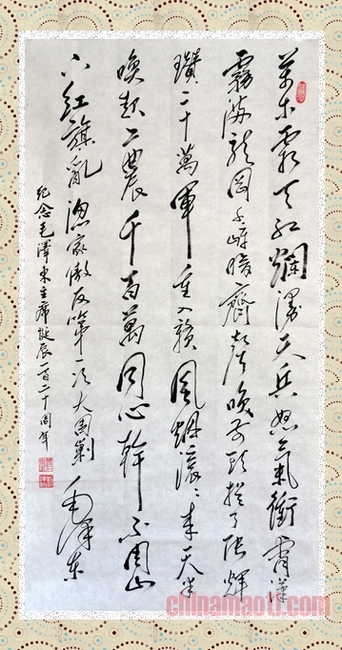 萬木霜天紅爛漫天兵怒氣衝霄漢
霧滿龍岡千嶂暗齊聲喚前頭捉了張輝
瓚二十萬軍重入贛風煙滾〻來天半
喚起工農千百萬同心幹不周山
下紅旗亂漁家傲反第一次大圍剿毛澤東
紀念毛澤東主席誕辰一百二十周年
chinamaoti.com